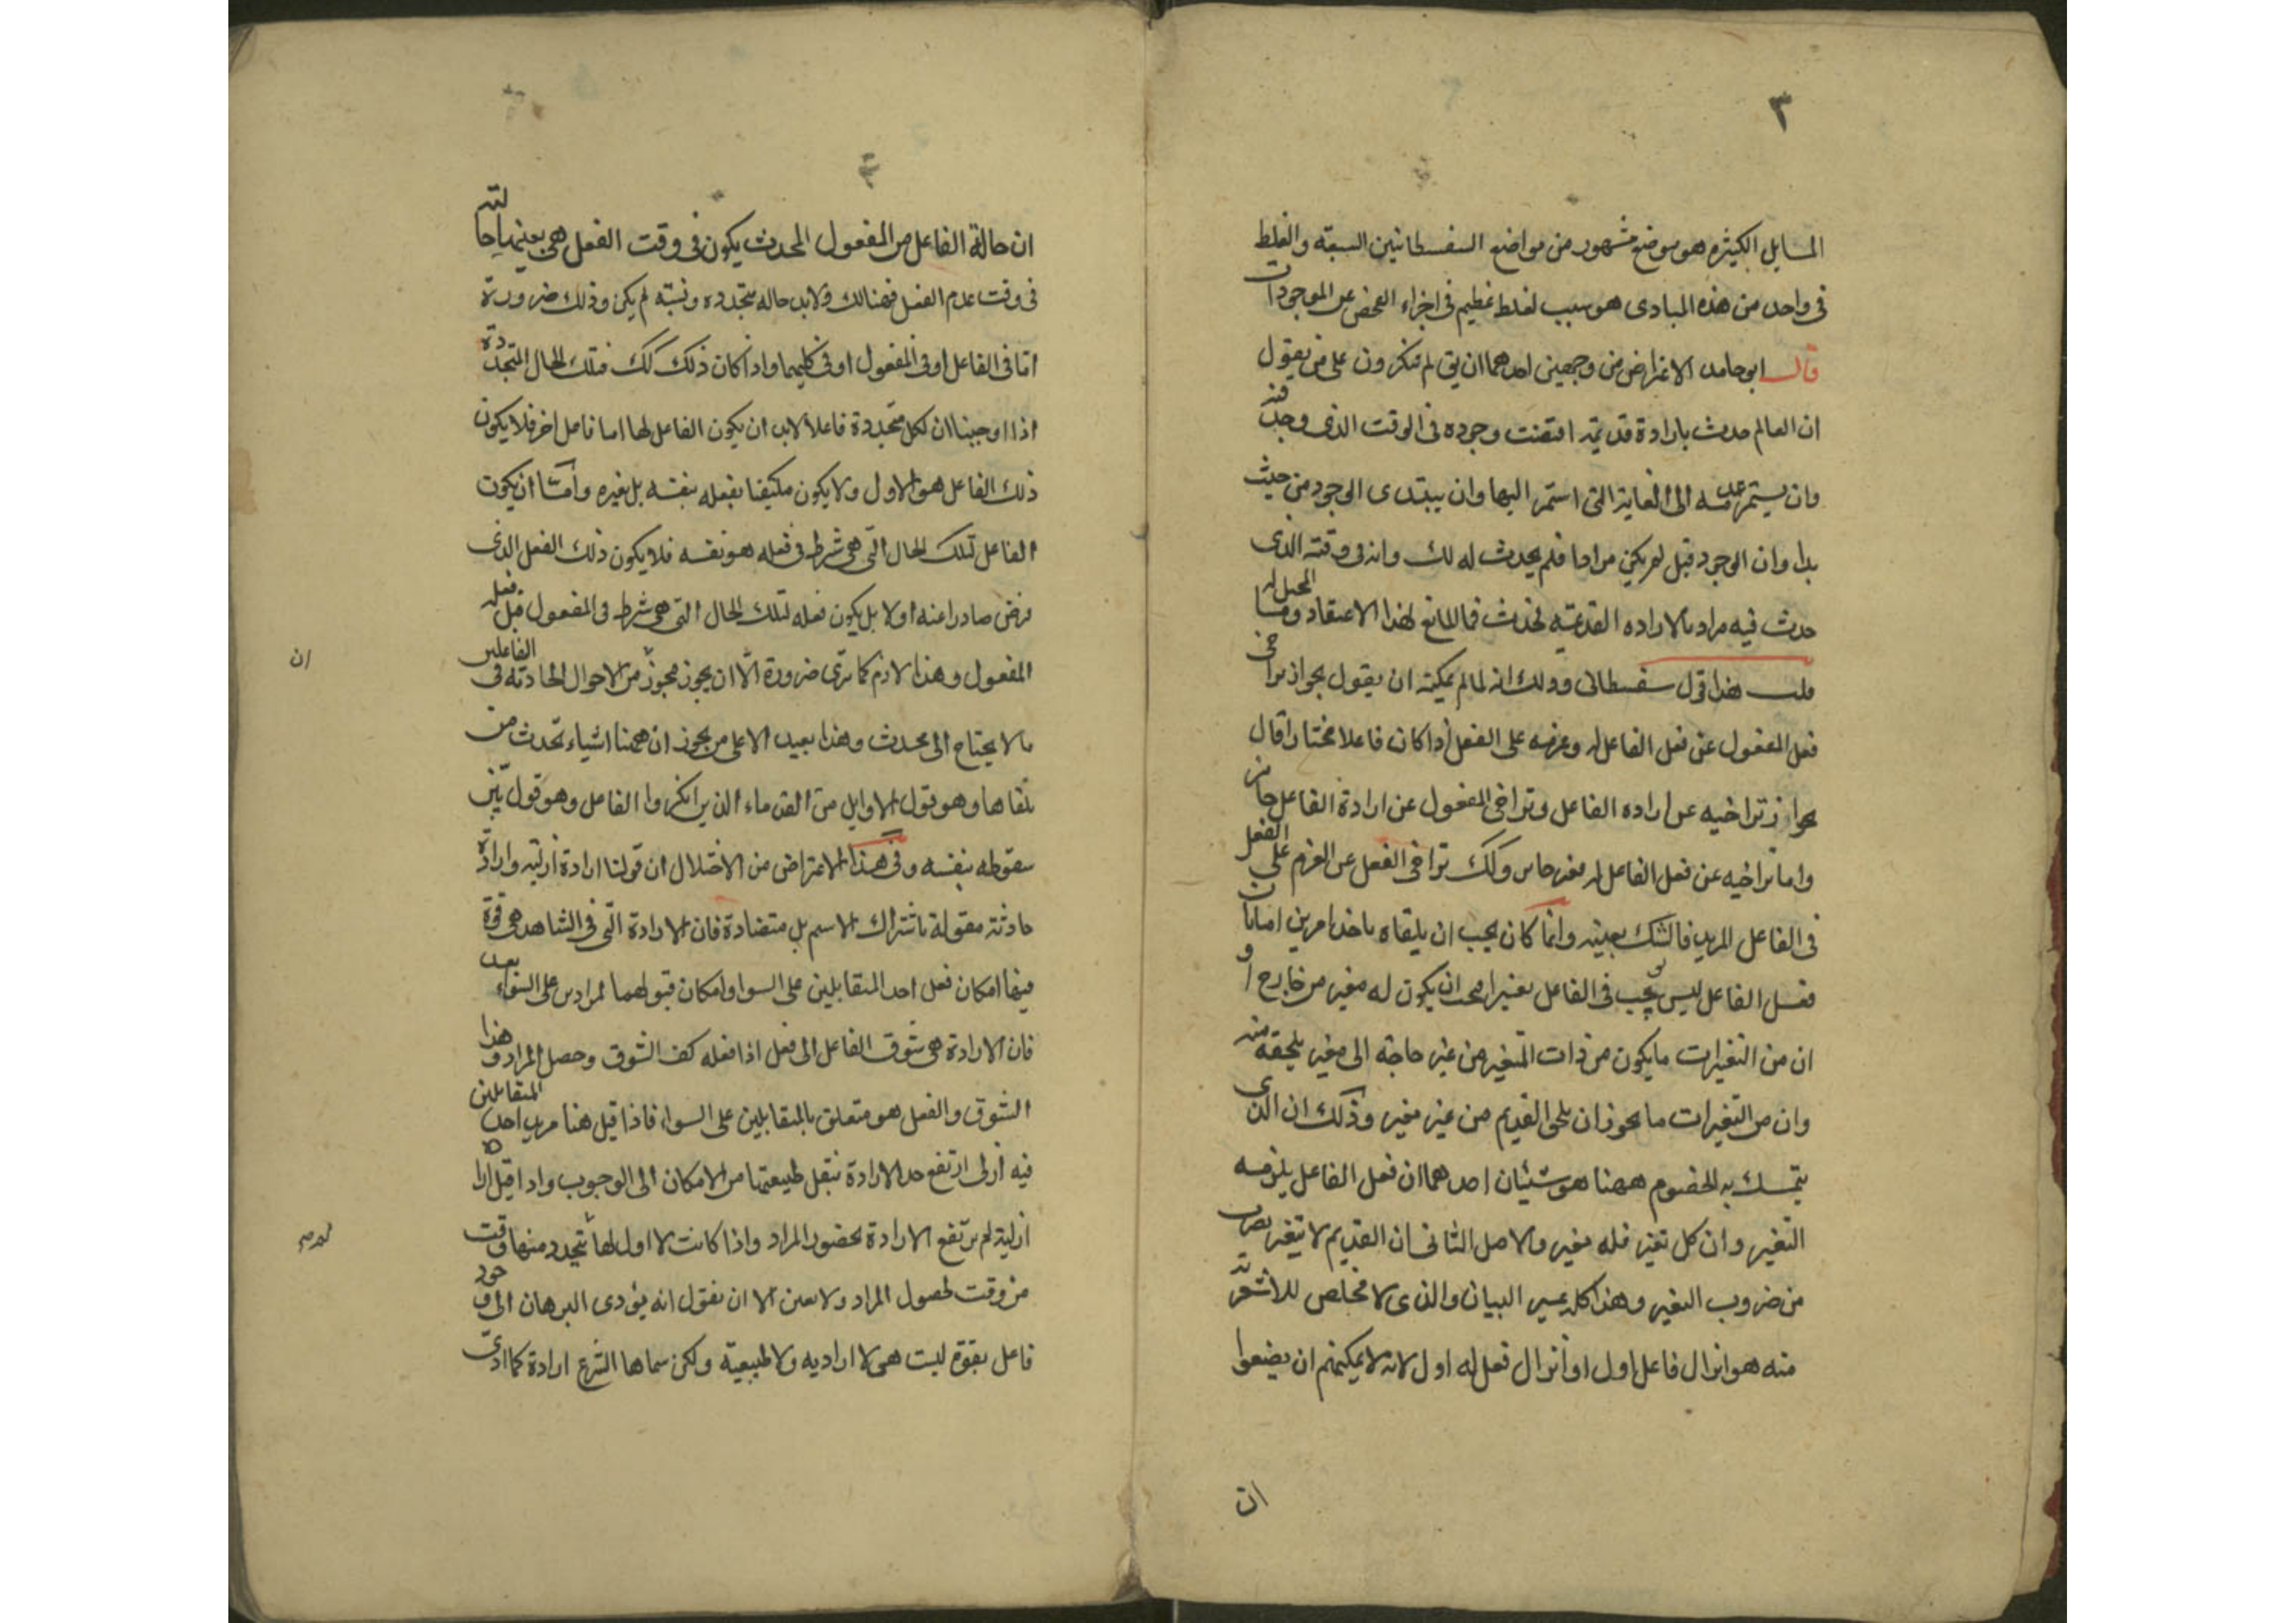 ٣
المسايل الكثيره هو موضع مشهور من مواضع السفسطانيين السبعه والغلط
فى واحد من هذه المبادى هو سبب لغلط عظيم فى اجراء الفحص عن الموجودات
قال ابو حامد الاعتراض من وجهين احدهما ان يق لم تنكرون على من يقول
ان العالم حدث بارادة قديمة اقتضت وجوده فى الوقت الذى وجد فيه
وان يستمر عدمه الى الغاية التى استمر اليها وان يبتدى الوجود من حيث
بدا وان الوجود قبل لم يكن مرادا فلم يحدث لذلك وانه فى وقته الذى
حدث فيه مراد بالاراده القديمه فحدث فما المانع لهذا الاعتقاد وما المحيل له
قلت هذا قول سفسطانى وذلك انه لما لم يمكنه ان يقول بجواز تراخى
فعل المفعول عن فعل الفاعل له وعزمه على الفعل اذا كان فاعلا مختارا قال
بجواز تراخيه عن اراده الفاعل وتراخى المفعول عن ارادة الفاعل جائز
واما تراخيه عن فعل الفاعل له فغير جائز وكك تراخى الفعل عن العزم على الفعل
فى الفاعل المريد فالشك بعينه وانما كان يجب ان يلقاه باحد امرين اما بان
فعل الفاعل ليس يوجب فى الفاعل تغيرا فيجب ان يكون له مغير من خارج او
ان من التغيرات ما يكون من ذات المتغير من غير حاجة الى مغير يلحقه منه
وان من التغيرات ما يجوز ان يلحق القديم من غير مغير وذلك ان الذى
يتمسك به الخصوم ههنا هو شيئان احدهما ان فعل الفاعل يلزمه
التغير وان كل تغير فله مغير والاصل الثانى ان القديم لا يتغير بضرب
من ضروب التغير وهذا كله عسير البيان والذى لا مخلص للاشعرية
منه هو انزال فاعل اول او انزال فعل له اول لانه لا يمكنهم ان يضعوا
ان
ان حالة الفاعل من المفعول المحدث يكون فى وقت الفعل هى بعينها حالته
فى وقت عدم الفعل فهنالك ولا بد حاله متجدده ونسبة لم يكن وذلك ضرورة
اما فى الفاعل او فى المفعول او فى كليهما واذا كان ذلك كك فتلك الحال المتجددة
اذا اوجبنا ان لكل متجددة فاعلا لابد ان يكون الفاعل لها اما فاعل اخر فلا يكون
ذلك الفاعل هو الاول ولا يكون مكتفيا بفعله بنفسه بل بغيره واما ان يكون
الفاعل لتلك الحال التى هى شرط فى فعله هو نفسه فلا يكون ذلك الفعل الذى
فرض صادرا عنه اولا بل يكون فعله لتلك الحال التى هى شرط فى المفعول قبل فعله
المفعول وهذا لازم كما ترى ضرورة الا ان يجوز مجوز من الاحوال الحادثه فى الفاعلين
ان
ما لا يحتاج الى محدث وهذا بعيد الا على من يجوز ان ههنا اشياء تحدث من
تلقاها وهو قول الاوايل من القدماء الذين انكروا الفاعل وهو قول بين
سقوطه بنفسه وفى هذا الاعتراض من الاختلال ان قولنا ارادة ازلية وارادة
حادثة مقولة باشتراك الاسم بل متضادة فان الارادة التى فى الشاهد هى قوة
فيها امكان فعل احد المتقابلين على السوا وامكان قبولهما لمرادين على السواء بعد
فان الارادة هى شوق الفاعل الى فعل اذا فعله كف الشوق وحصل المراد وهذا
الشوق والفعل هو متعلق بالمتقابلين على السواء فاذا قيل هنا مريد احد المتقابلين
فيه ازلى ارتفع حد الارادة بنقل طبيعتها من الامكان الى الوجوب واذا قيل ارادة
ازلية لم يرتفع الارادة بحضور المراد واذا كانت لا اول لها لم يتجدد منها وقت
من وقت لحصول المراد ولا تعين الا ان نقول انه يؤدى البرهان الى وجود
فاعل بقوة ليست هى لا ارادية ولا طبيعية ولكن سماها الشرع ارادة كما ادى